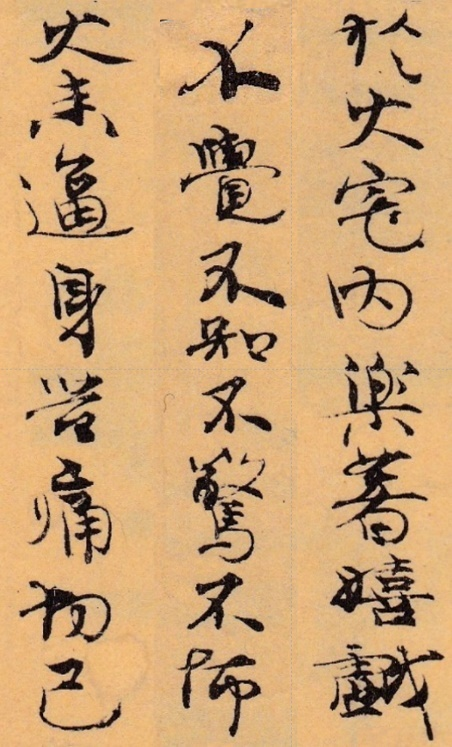 於火宅内樂著嬉戲
不覺不知不驚不怖
火来逼身苦痛切己